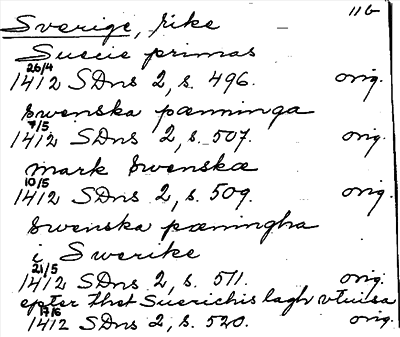 Sverige, rike 116
Suecie primas
26/4
1412 SDns 2, s. 496. orig.
swenska pæninga
7/5
1412 SDns 2, s. 507. orig.
mark swenskæ
10/5
1412 SDns 2, s. 509. orig.
swenska pæningha
i Swerike
21/5
1412 SDns 2, s. 511. orig.
epter thet Suerichis lagh vtuisa
17/6
1412 SDns 2, s. 520. orig.